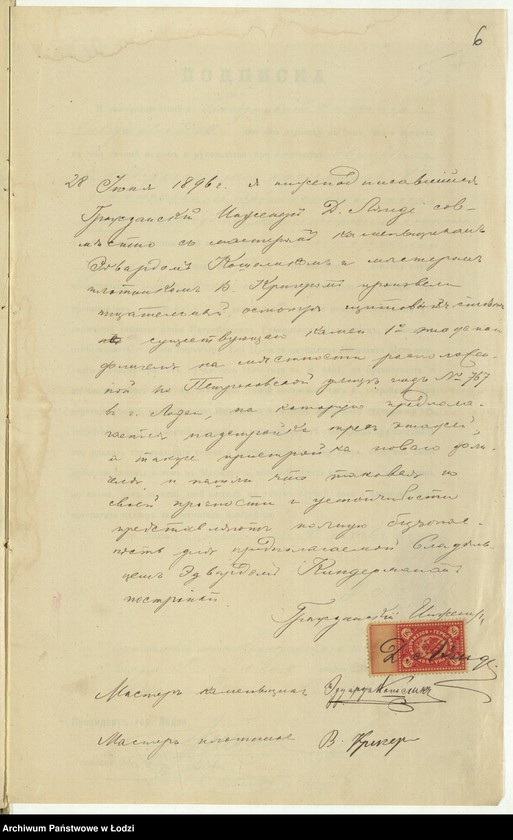 6
28 Июня 1896 г. я нижеподписавшийся
Гражданский Инженер Д. Ланде сов-
местно с мастером каменьщиком
Эдвардом и мастером
плотником В. Кригером произвели
тщательный осмотр стен
существующаго 1но этажнаго
флигеля на местности расположен-
ной по Петроковской улице под № 767
в г. Лодзи, на которую предпола-
гается надстройка трех этажей,
а также пристройка новаго фли-
геля, и нашли что таковая по
своей прочности и устойчивости
представляют полную безопас-
ность для предполагаемой Владель-
цем Эдвардом Киндерманом
постройки.
Гражданский Инженер
Д Ланде
Мастер каменьщик Эдуард
Мастер плотник В. Кригер
Archiwum Państwowe w Łodzi